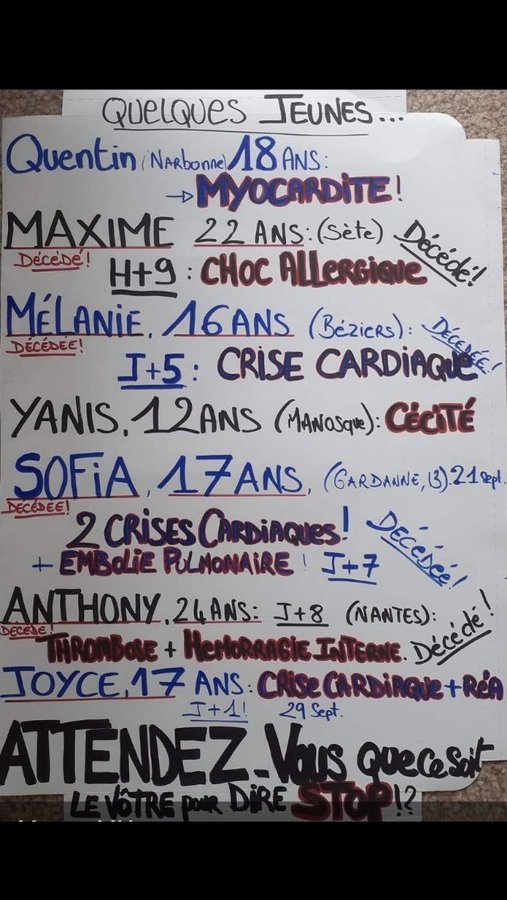 QUELQUES JEUNES...
Quentin (Narbonne) 18 ANS:
→ MYOCARDITE!
MAXIME 22 ANS: (Sète) Décédé!
DÉCÉDÉ!
H+9: CHOC ALLERGIQUE
MÉLANIE, 16 ANS (Béziers): DÉCÉDÉE!
DÉCÉDÉE!
J+5: CRISE CARDIAQUE
YANIS, 12 ANS (MANOSQUE): CÉCITÉ
SOFiA, 17 ANS, (GARDANNE, 13) 21 Sept.
DÉCÉDÉE!
2 CRISES CARDIAQUES! DÉCÉDÉE!
+ EMBOLIE PULMONAIRE! J+7
ANTHONY, 24 ANS: J+8 (NANTES):
DÉCÉDÉ!
THROMBOSE + HÉMORRAGIE INTERNE. Décédé!
JOYCE, 17 ANS: CRISE CARDIAQUE + RÉA
J+1! 29 Sept.
ATTENDEZ-Vous QUE CE SOIT
LE VÔTRE pour DIRE STOP!?